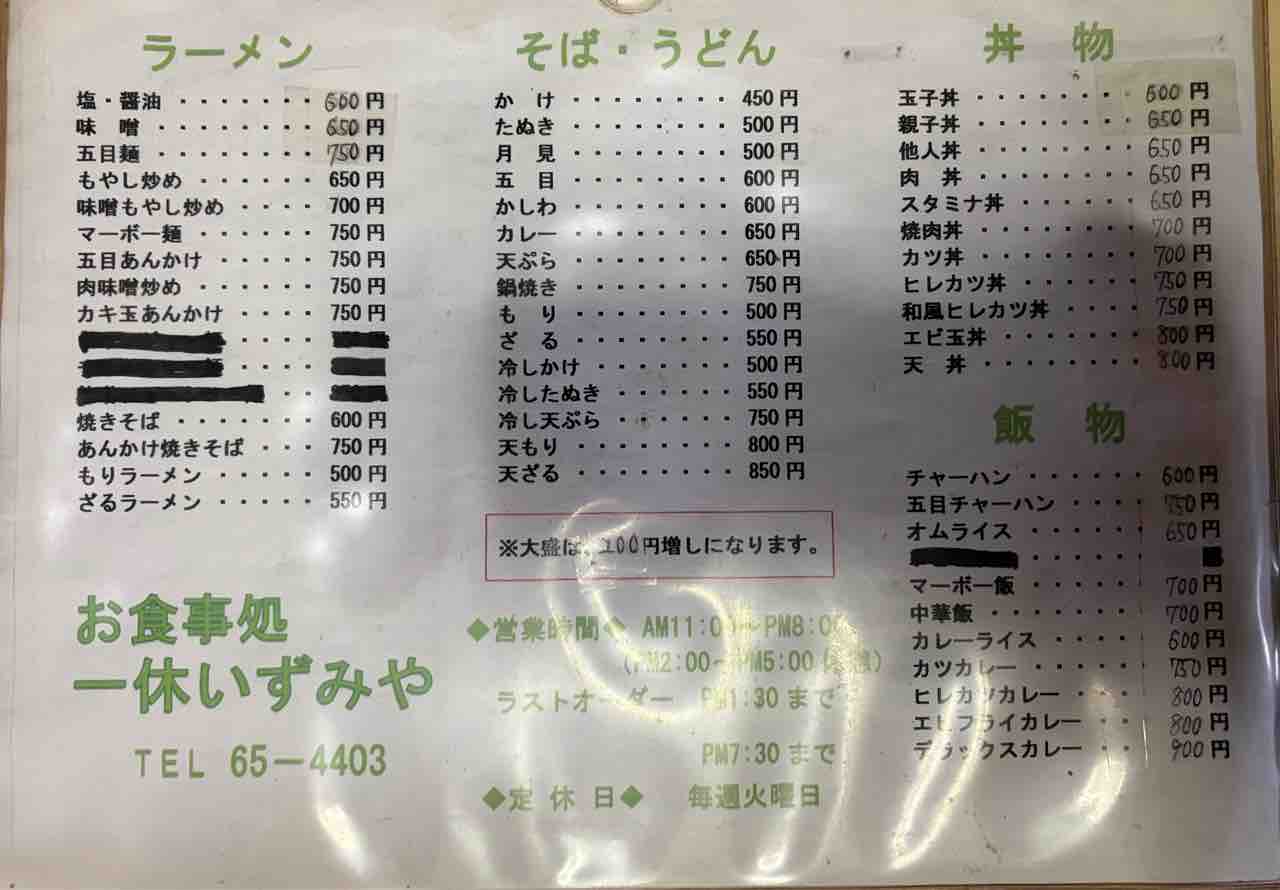 ラーメン
塩・醤油 ・・・・・・・ 600円
味 噌 ・・・・・・・・ 650円
五目麺 ・・・・・・・・ 750円
もやし炒め ・・・・・・ 650円
味噌もやし炒め ・・・・ 700円
マーボー麺 ・・・・・・ 750円
五目あんかけ ・・・・・ 750円
肉味噌炒め ・・・・・・ 750円
カキ玉あんかけ ・・・・ 750円
焼きそば ・・・・・・・ 600円
あんかけ焼きそば ・・・ 750円
もりラーメン ・・・・・ 500円
ざるラーメン ・・・・・ 550円
お食事処
一休いずみや
TEL 65－4403
そば・うどん
か け ・・・・・・・・ 450円
たぬき ・・・・・・・・ 500円
月 見 ・・・・・・・・ 500円
五 目 ・・・・・・・・ 600円
かしわ ・・・・・・・・ 600円
カレー ・・・・・・・・ 650円
天ぷら ・・・・・・・・ 650円
鍋焼き ・・・・・・・・ 750円
も り ・・・・・・・・ 500円
ざ る ・・・・・・・・ 550円
冷しかけ ・・・・・・・ 500円
冷したぬき ・・・・・・ 550円
冷し天ぷら ・・・・・・ 750円
天もり ・・・・・・・・ 800円
天ざる ・・・・・・・・ 850円
※大盛は、100円増しになります。
◆営業時間◆ AM11:00～PM8:00
(PM2:00～PM5:00
ラストオーダー PM1:30まで
PM7:30まで
◆定 休 日◆ 毎週火曜日
丼 物
玉子丼 ・・・・・・・・ 600円
親子丼 ・・・・・・・・ 650円
他人丼 ・・・・・・・・ 650円
肉 丼 ・・・・・・・・ 650円
スタミナ丼 ・・・・・・ 650円
焼肉丼 ・・・・・・・・ 700円
カツ丼 ・・・・・・・・ 700円
ヒレカツ丼 ・・・・・・ 750円
和風ヒレカツ丼 ・・・・ 750円
エビ玉丼 ・・・・・・・ 800円
天 丼 ・・・・・・・・ 800円
飯 物
チャーハン ・・・・・・ 600円
五目チャーハン ・・・・ 750円
オムライス ・・・・・・ 650円
マーボー飯 ・・・・・・ 700円
中華飯 ・・・・・・・・ 700円
カレーライス ・・・・・ 600円
カツカレー ・・・・・・ 750円
ヒレカツカレー ・・・・ 800円
エビフライカレー ・・ 800円
デラックスカレー ・・ 900円